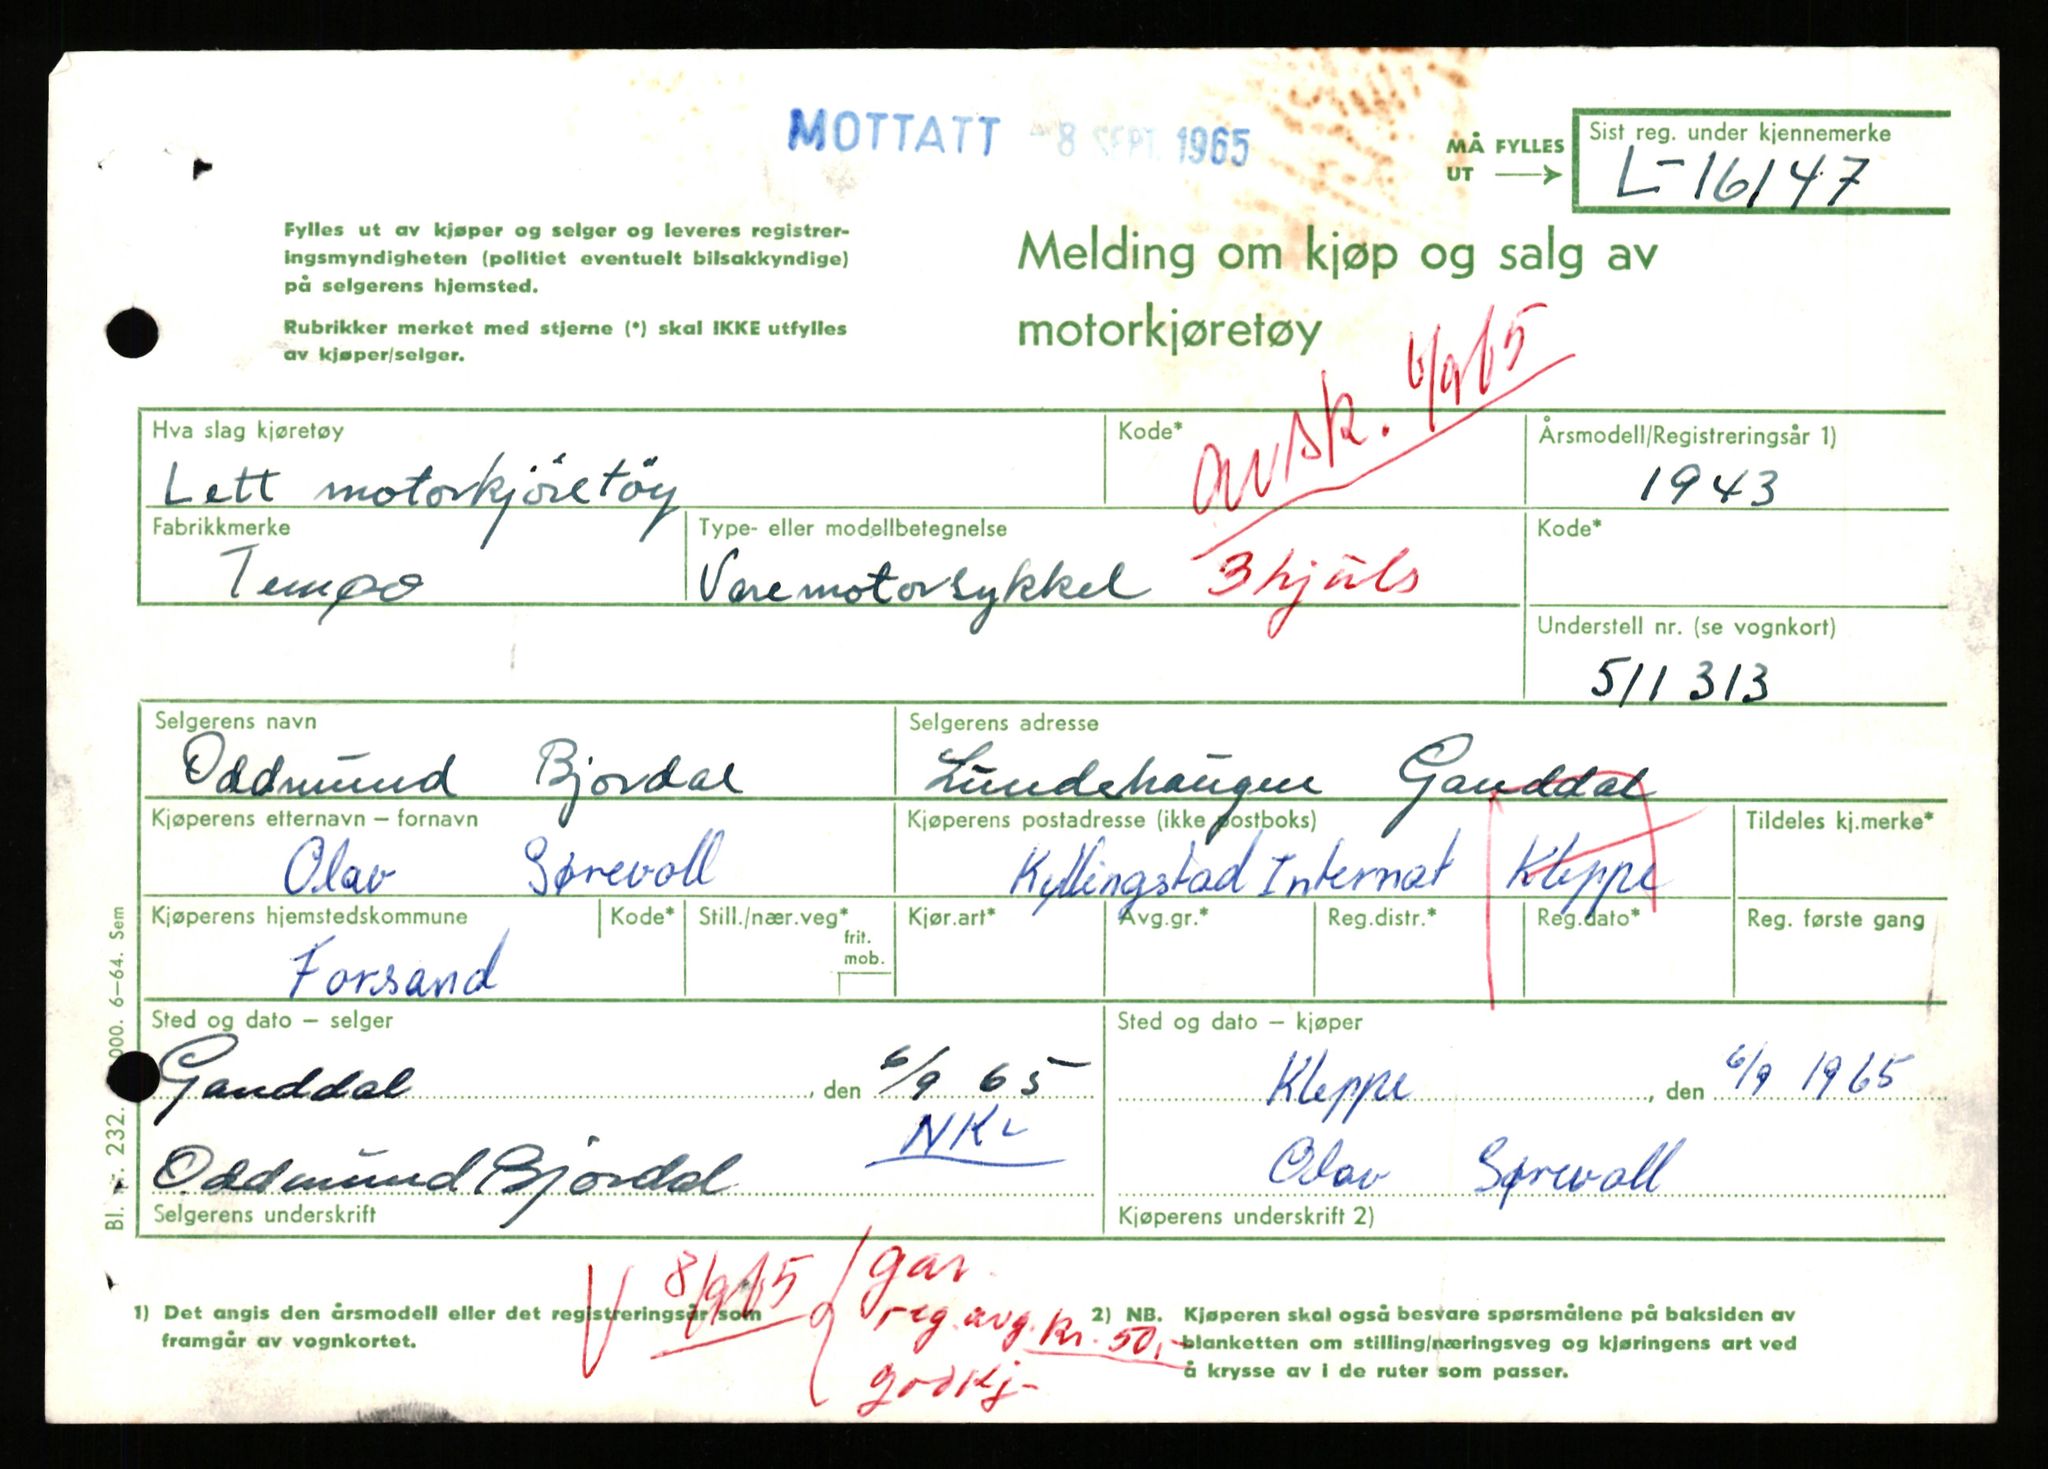 MOTTATT - 8 SEPT. 1965
MÅ FYLLES UT
Sist reg. under kjennemerke
L-16147
Fylles ut av kjøper og selger og leveres registrer-
ingsmyndigheten (politiet eventuelt bilsakkyndige)
på selgerens hjemsted.
Rubrikker merket med stjerne (*) skal IKKE utfylles
av kjøper/selger.
Melding om kjøp og salg av
motorkjøretøy
avsk. 6/9 65
Hva slag kjøretøy
Kode*
Årsmodell/Registreringsår 1)
Lett motorkjöretöy
1943
Fabrikkmerke
Type- eller modellbetegnelse
Kode*
Tempo
Varemotorsykkel 3hjuls
Understell nr. (se vognkort)
511313
Selgerens navn
Selgerens adresse
Oddmund Bjordal
Lundehaugen Ganddal
Kjøperens etternavn – fornavn
Kjøperens postadresse (ikke postboks)
Tildeles kj.merke*
Olav Sørevoll
Kyllingstad Internat Kleppe
Kjøperens hjemstedskommune
Kode*
Still./nær.veg*
frit.
mob.
Kjør.art*
Avg.gr.*
Reg.distr.*
Reg.dato*
Reg. første gang
Forsand
Sted og dato – selger
Sted og dato – kjøper
Ganddal , den 6/9 65
Kleppe , den 6/9 1965
NKL
Oddmund Bjordal
Olav Sørevoll
Selgerens underskrift
Kjøperens underskrift 2)
V 8/9 65
gar.
reg.avg. kr. 50,-
godkj-
1) Det angis den årsmodell eller det registreringsår som
framgår av vognkortet.
2) NB. Kjøperen skal også besvare spørsmålene på baksiden av
blanketten om stilling/næringsveg og kjøringens art ved
å krysse av i de ruter som passer.
000. 6–64. Sem
232.